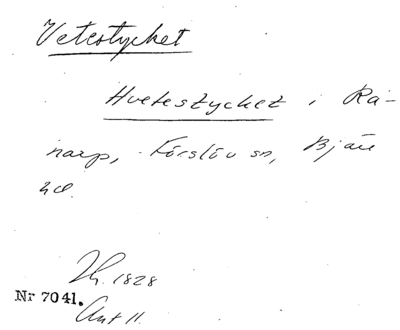 Vetestycket
Hvetestycket i Rä-
narp, Förslöv sn, Bjäre
hd.
1828
Nr 7041.
Ant 11.